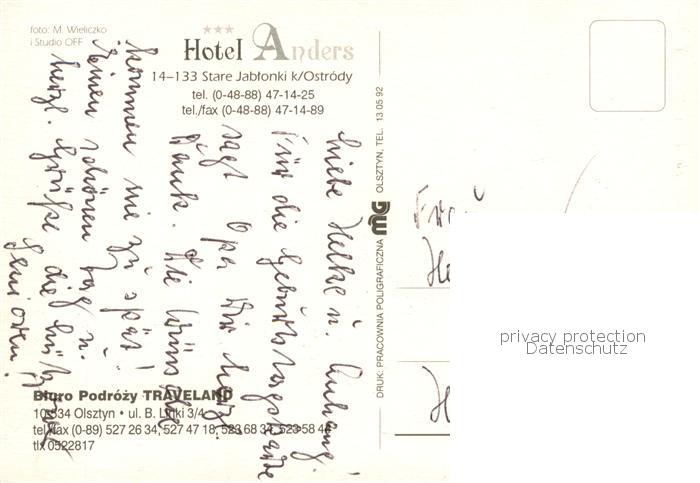 foto: M. Wieliczko
i Studio OFF
Hotel Anders
14-133 Stare Jabłonki k/Ostródy
tel. (0-48-88) 47-14-25
tel./fax (0-48-88) 47-14-89
Liebe Heike u. Anhang!
Für die Geburtstagskarte
sagt Opa Dir herzl.
Dank. Die Wünsche
kommen nie zu spät!
Einen schönen Tag u.
herzl. Grüße die
Senioren!
Biuro Podróży TRAVELAND
10-534 Olsztyn • ul. B. Linki 3/4
tel./fax (0-89) 527 26 34, 527 47 18, 523 68 34, 523 58 44
tlx 0522817
DRUK: PRACOWNIA POLIGRAFICZNA MG OLSZTYN, TEL. 13 05 92
Frau
He
H
privacy protection
Datenschutz